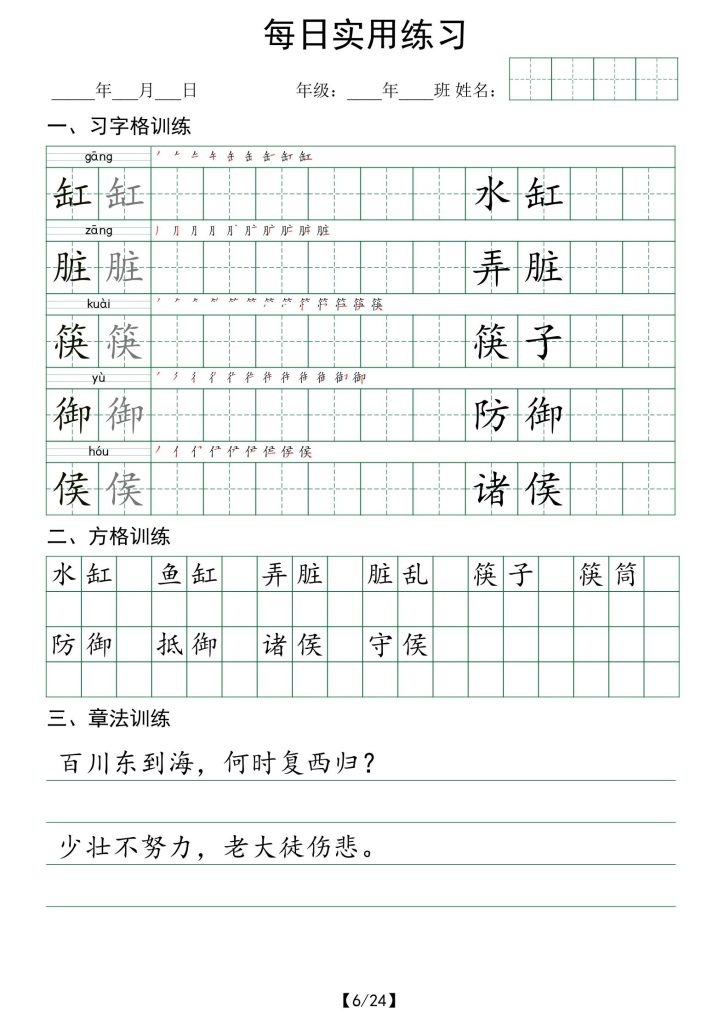 每日实用练习
_____年___月___日 年级：____年____班 姓名：
一、习字格训练
gāng
缸 缸 水 缸
zāng
脏 脏 弄 脏
kuài
筷 筷 筷 子
yù
御 御 防 御
hóu
侯 侯 诸 侯
二、方格训练
水缸 鱼缸 弄脏 脏乱 筷子 筷筒
防御 抵御 诸侯 守侯
三、章法训练
百川东到海，何时复西归？
少壮不努力，老大徒伤悲。
【6/24】